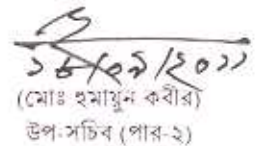 ১৮/০৯/২০১১
(মোঃ হুমায়ুন কবীর)
উপ-সচিব (পার-২)